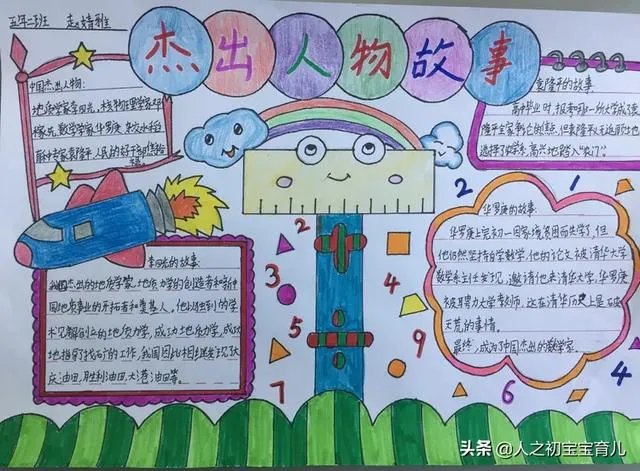 五年二班
杰出人物故事
中国杰出人物:
地质学家李四光,核物理学家邓
稼先,数学家华罗庚,杂交水稻
袁隆平的故事
高中毕业时,报考哪一所大学成该
隆平全家争论的焦点,但袁隆平
李四光的故事:
我国杰出的地质学家,地质力学的创造者和新中
国地质事业的开拓者和奠基人,
地质力学,成功
地指导了找石油的工作,我国因此相继发现大
庆油田,胜利油田,大港油田等。
华罗庚的故事:
华罗庚上完初一因家境贫困而失学了,但
他仍然坚持自学数学,他的论文被清华大学
数学系主任发现,邀请他来清华大学,华罗庚
被聘为大学教师,这在清华历史上是破
天荒的事情。
最终,成为了中国杰出的数学家。
2
1
2
3
4
5
9
7
6
4
头条 @人之初宝宝育儿